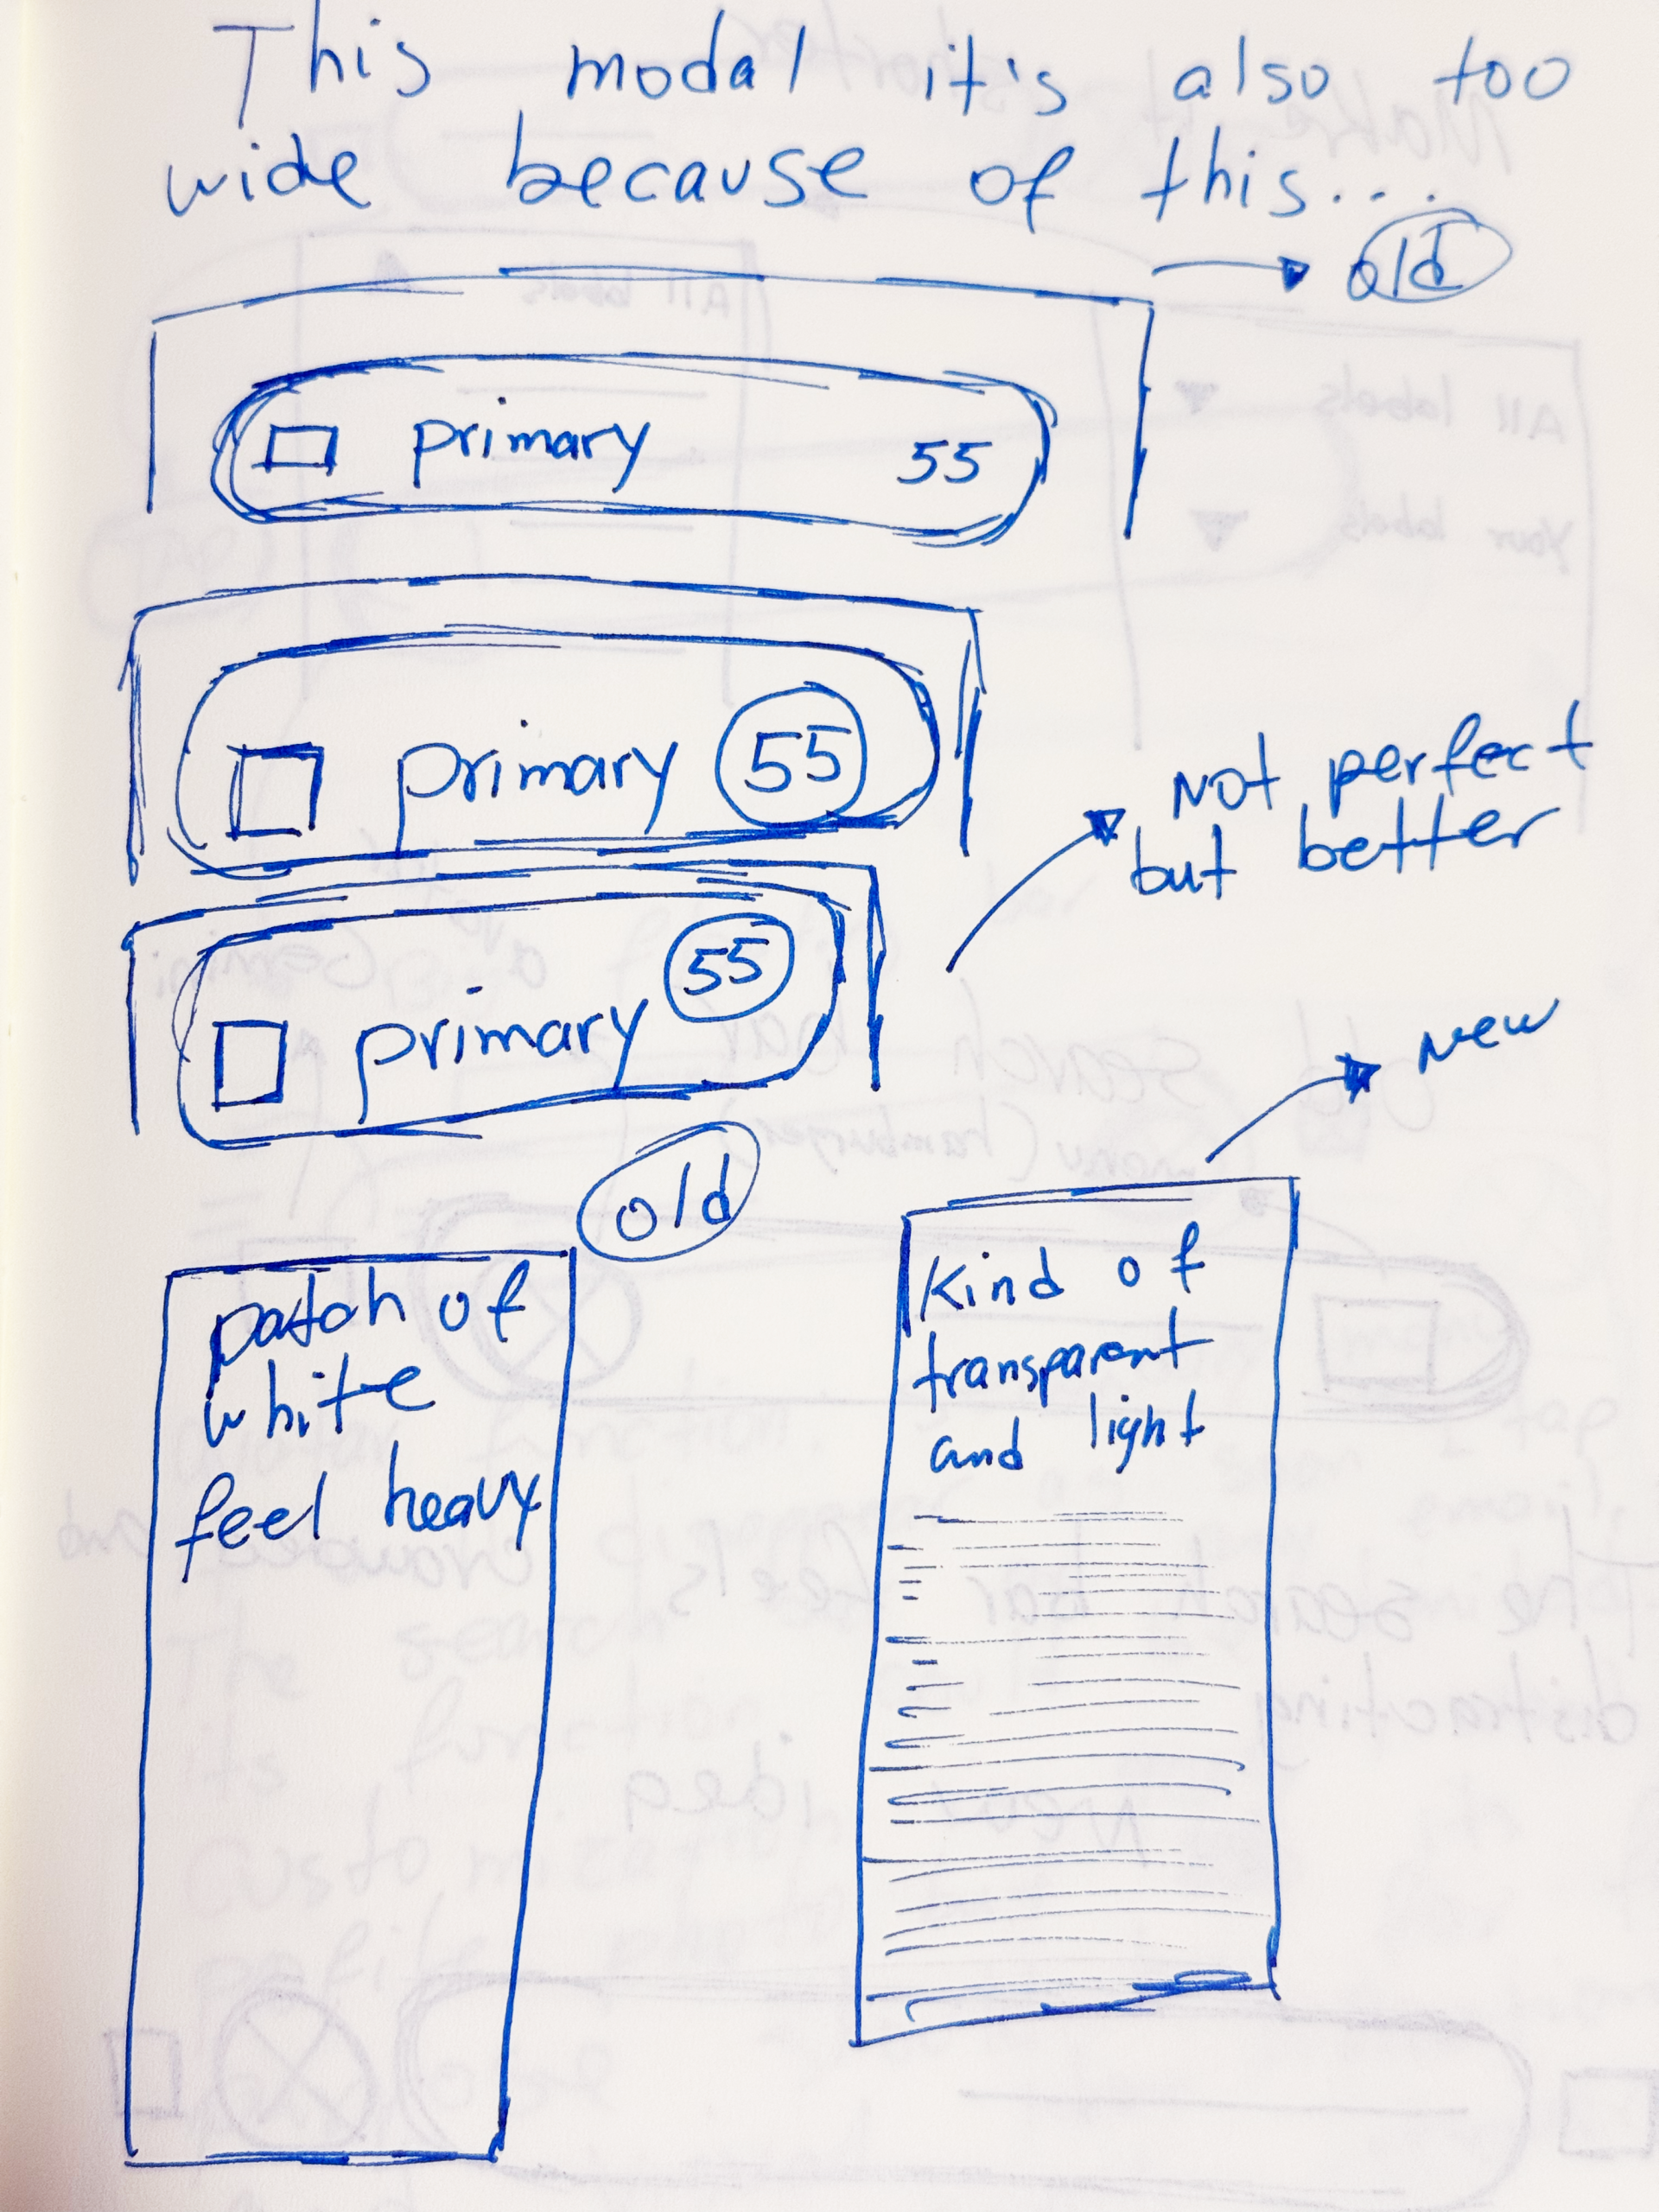 This modal it's also too
wide because of this...
old
primary 55
primary 55
Not perfect
but better
primary 55
New
old
patch of
white
feel heavy
Kind of
transparent
and light